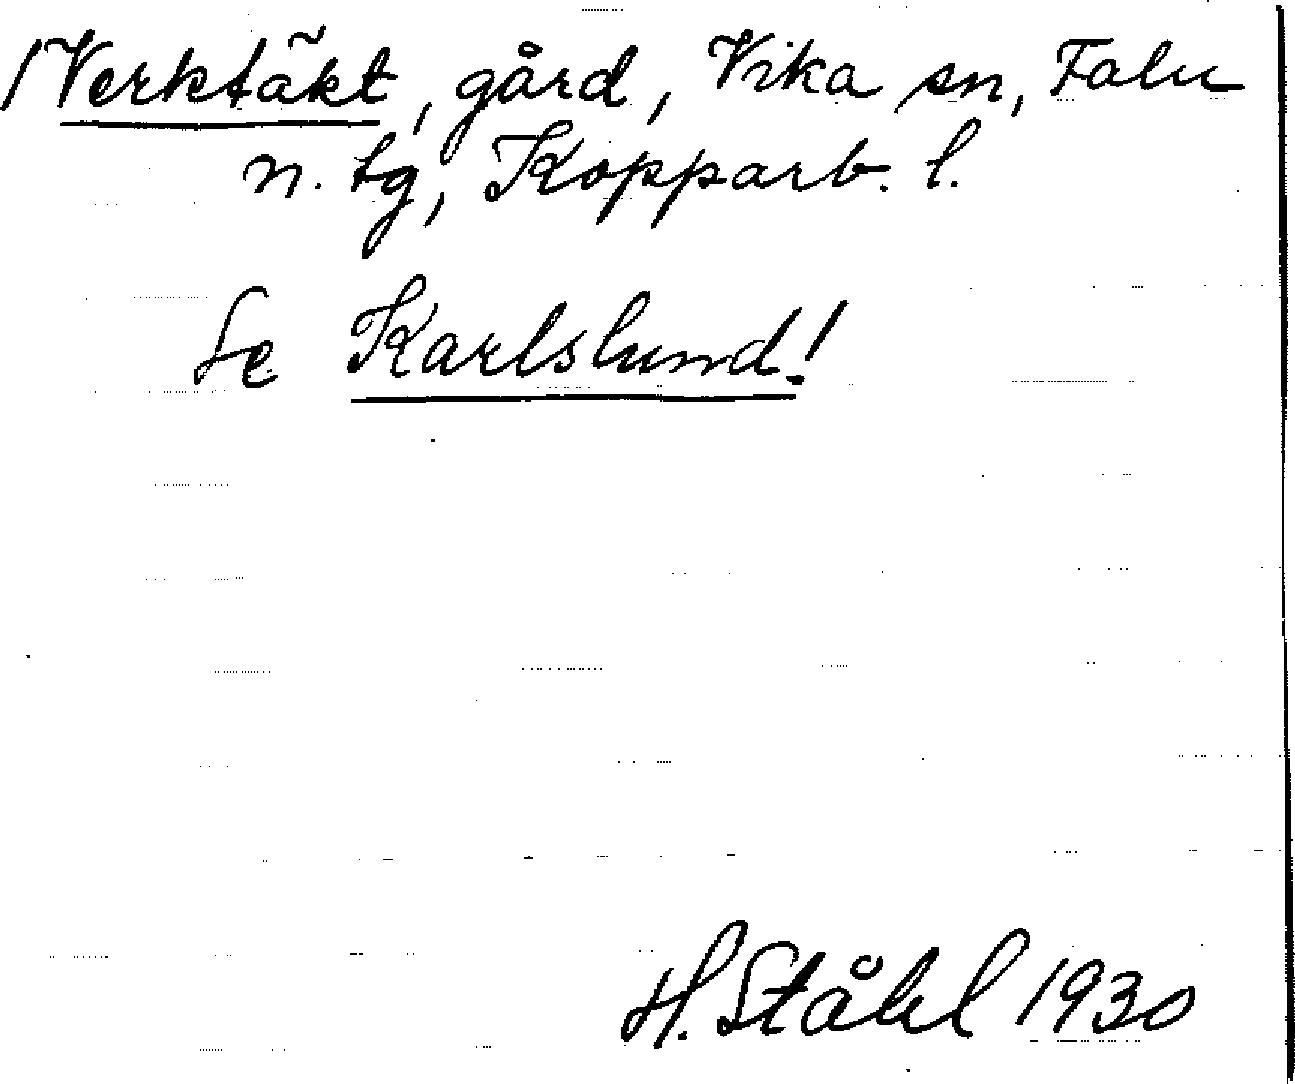 /Verktäkt, gård, Vika sn, Falu
n. tg, Kopparb. l.
Se Karlslund!
H. Ståhl 1930